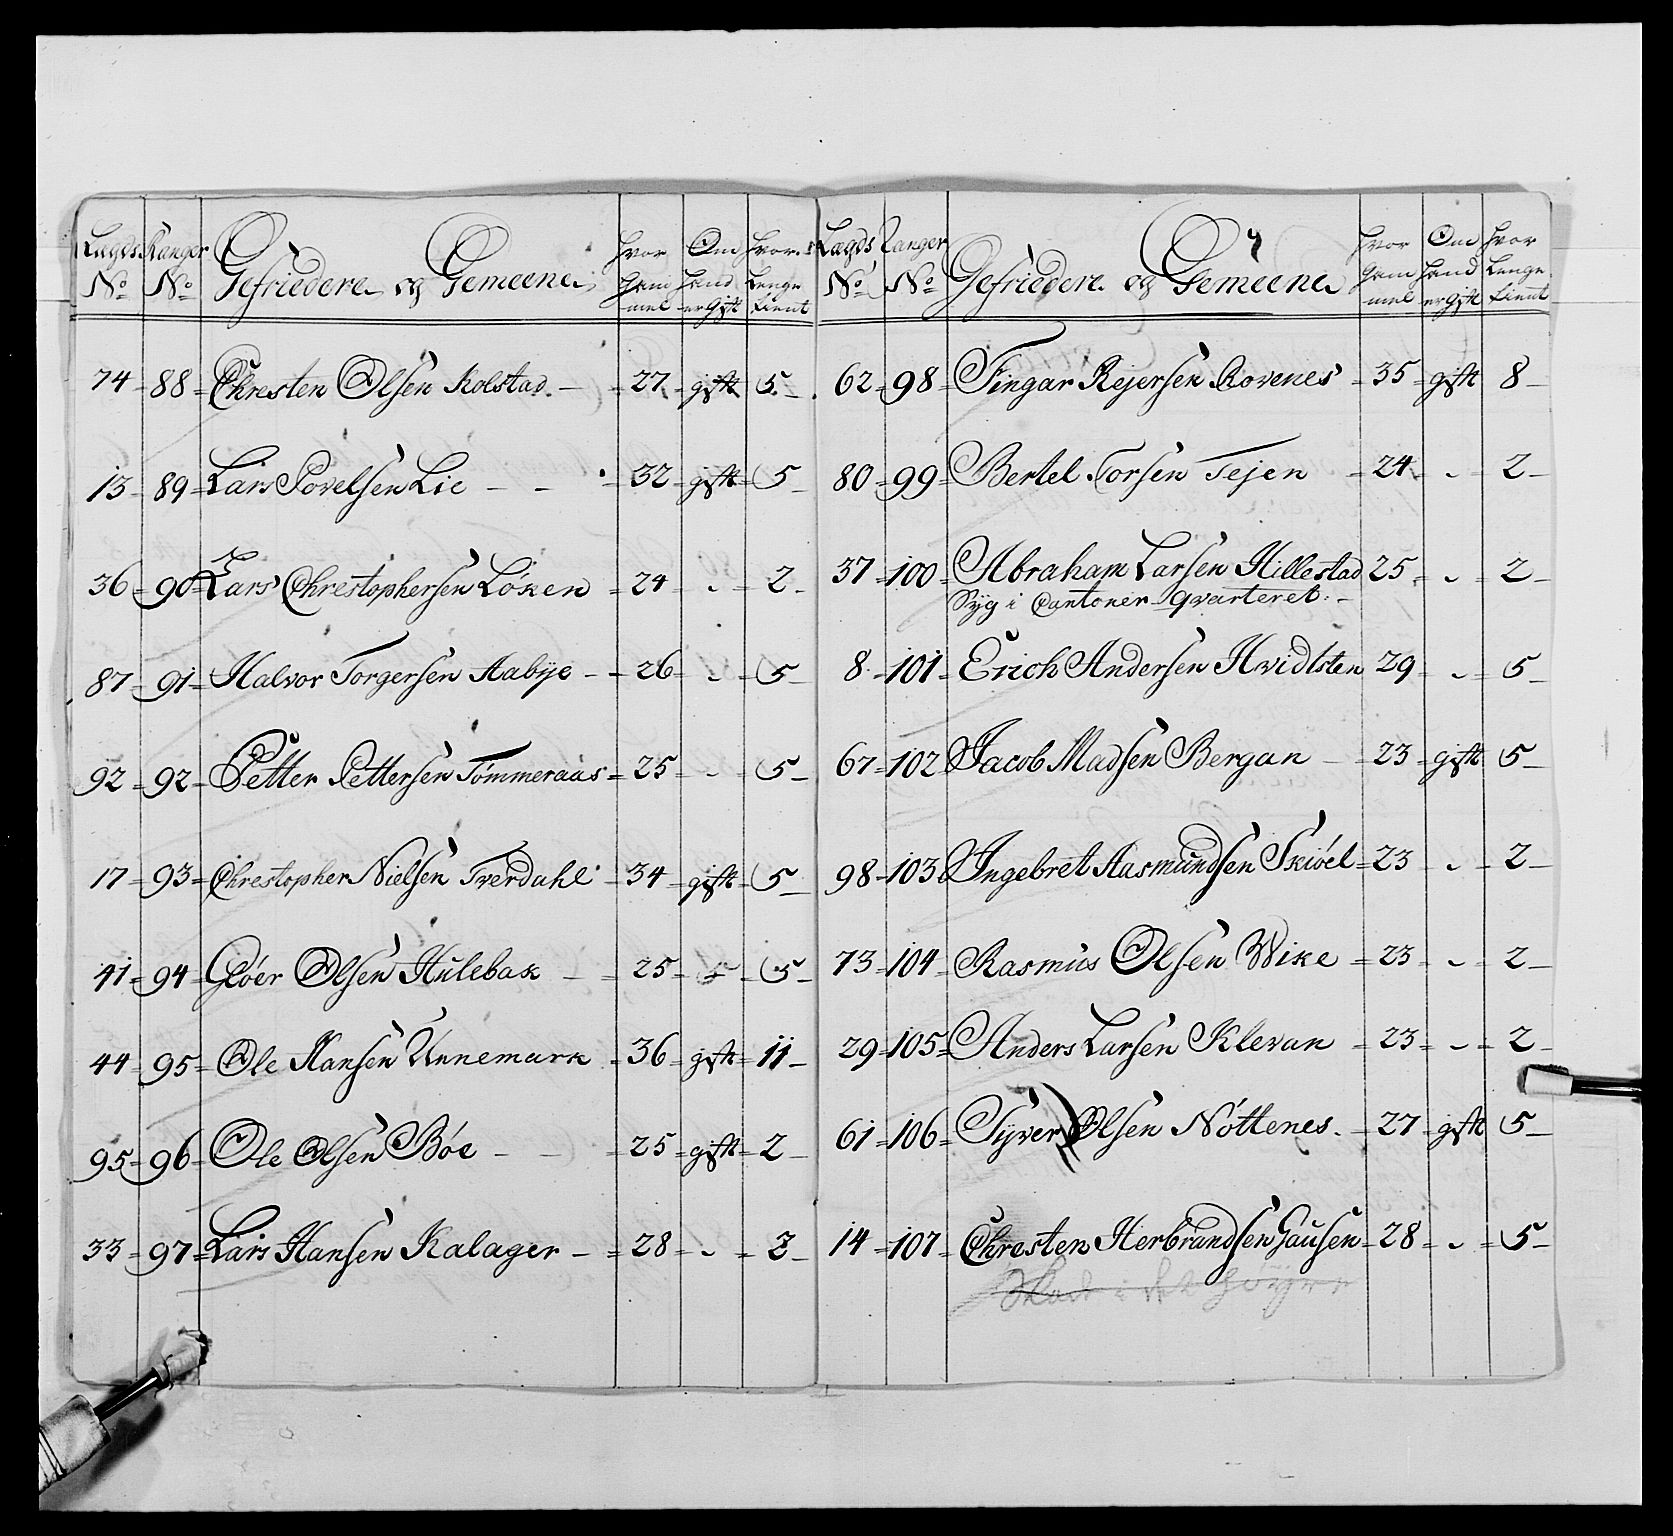 Lægds No Ranger No Gefriedere og Gemeene hvor gam mel Om hand er gift hvor lenge tient
74 - 88 - Chresten Olsen Kolstad - 27 - gift 5 -
13 - 89 - Lars Povelsen Lie - - 32 - gift - 5 -
36 - 90 - Lars Chrestophersen Löken - 24 - „ - 2 -
87 - 91 - Halvor Torgersen Aabye - 26 - „ - 5 -
92 - 92 - Petter Pettersen Tömmeraas - 25 - „ - 5 -
17 - 93 - Chrestopher Nielsen Tverdahl - 34 - gift - 5 -
41 - 94 - Glöer Olsen Hulebak - 25 - - 5 -
44 - 95 - Ole Hansen Unnemark - 36 - gift - 11 -
95 - 96 - Ole Olsen Böe - - 25 - gift - 2 -
33 - 97 - Lars Hansen Kalager - 28 - „ - 2 -
Lægds No Ranger No Gefriedere og Gemeene hvor gam mel Om hand er gift hvor lenge tient
62 - 98 - Fingar Rejersen Rovenes - 35 - gift 8 -
80 - 99 - Bertel Torsen Tejen - 24 - „ - 2 -
37 - 100 - Abraham Larsen Hillestad 25 - „ - 2 -
Syg i Cantoner Qvarteret. -
8 - 101 - Erich Andersen Hvidtsten 29 - „ - 5 -
67 - 102 Jacob Madsen Bergan - 23 - gift 5 -
98 - 103 Ingebret Aasmundsen Skiöel - 23 - „ - 2 -
73 - 104 - Rasmus Olsen Wike - 23 - „ - 2 -
29 - 105 - Anders Larsen Klevan - 23 - „ - 2 -
61 - 106 - Syver Olsen Nöttenes. - 27 - gift 5 -
14 - 107 - Chresten Herbrandsen Gausen - 28 - „ - 5 -
Skad i det höyre